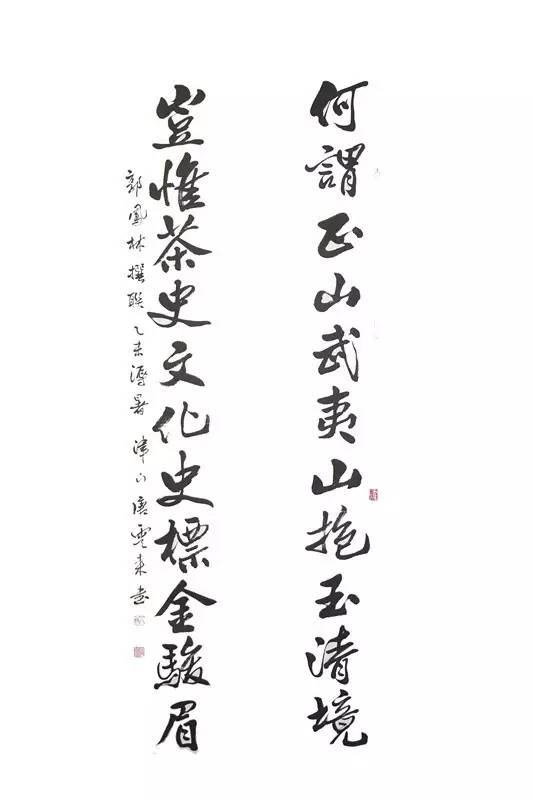 何謂正山武夷山抱玉清境
豈惟茶史文化史標金駿眉
郭鳳林撰聯乙未溽暑津門唐雲來書